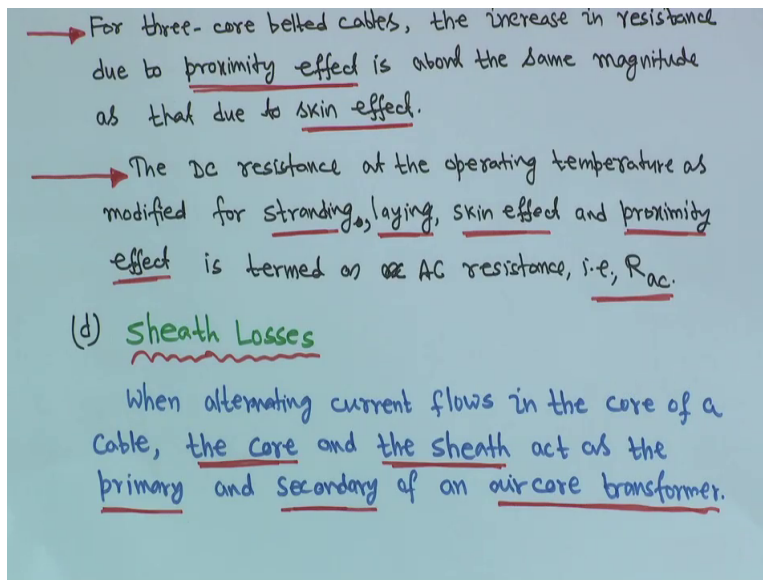 For three-core belted cables, the increase in resistance
due to proximity effect is about the same magnitude
as that due to skin effect.
The DC resistance at the operating temperature as
modified for stranding, laying, skin effect and proximity
effect is termed as AC resistance, i.e., Rac.
(d) Sheath Losses
When alternating current flows in the core of a
cable, the core and the sheath act as the
primary and secondary of an air core transformer.